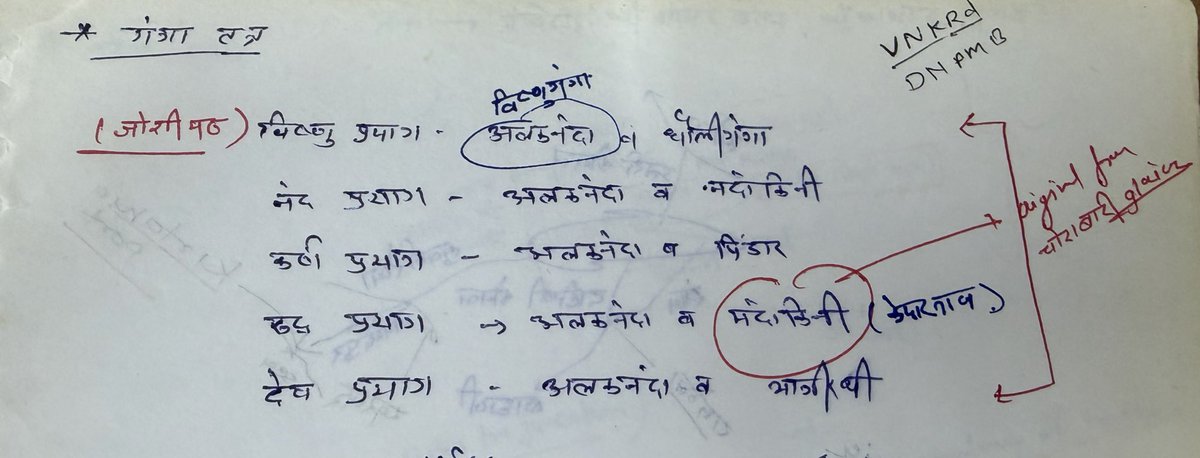 * गंगा तंत्र
VNKRd
DNPMB
विष्णुगंगा
(जोशीमठ) विष्णु प्रयाग - अलकनंदा व धौलीगंगा
नंद प्रयाग - अलकनंदा व नंदाकिनी
कर्ण प्रयाग - अलकनंदा व पिंडार
रुद्र प्रयाग → अलकनंदा व मंदाकिनी (केदारनाथ)
देव प्रयाग - अलकनंदा व भागीरथी
origint from
चोराबारी glacier